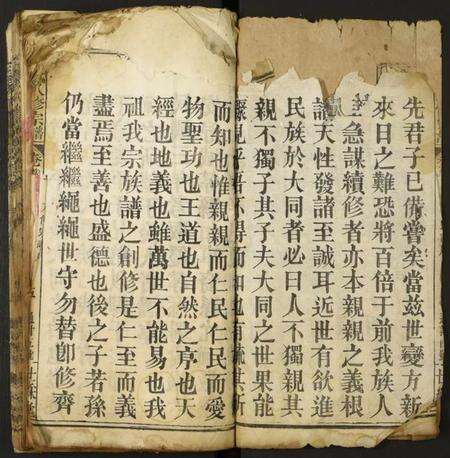 先君子已備嘗矣當茲世變方新
來日之難恐將百倍于前我族人
急謀續修者亦本親親之義根
諸天性發諸至誠耳近世有欲進
民族於大同者必曰人不獨親其
親不獨子其子夫大同之世果能
見乎吾不得而知也有
而知也惟親親而仁民仁民而愛
物聖功也王道也自然之序也天
經也地義也雖萬世不能易也我
祖我宗族譜之創修是仁至而義
盡焉至善也盛德也後之子若孫
仍當繼繼繩繩世守勿替卽修齊